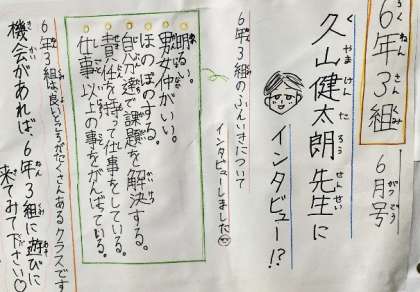 6年3組
6月号
久山健太朗先生に
インタビュー!?
6年3組のふんいきについて
インタビューしました
明るい。
男女仲がいい。
ほのぼのする。
自分達で課題を解決する。
責任を持って仕事をしている。
仕事以上の事をがんばっている。
6年3組は良いところがたくさんあるクラスです
機会があれば、6年3組に遊びに
来てみて下さい♡